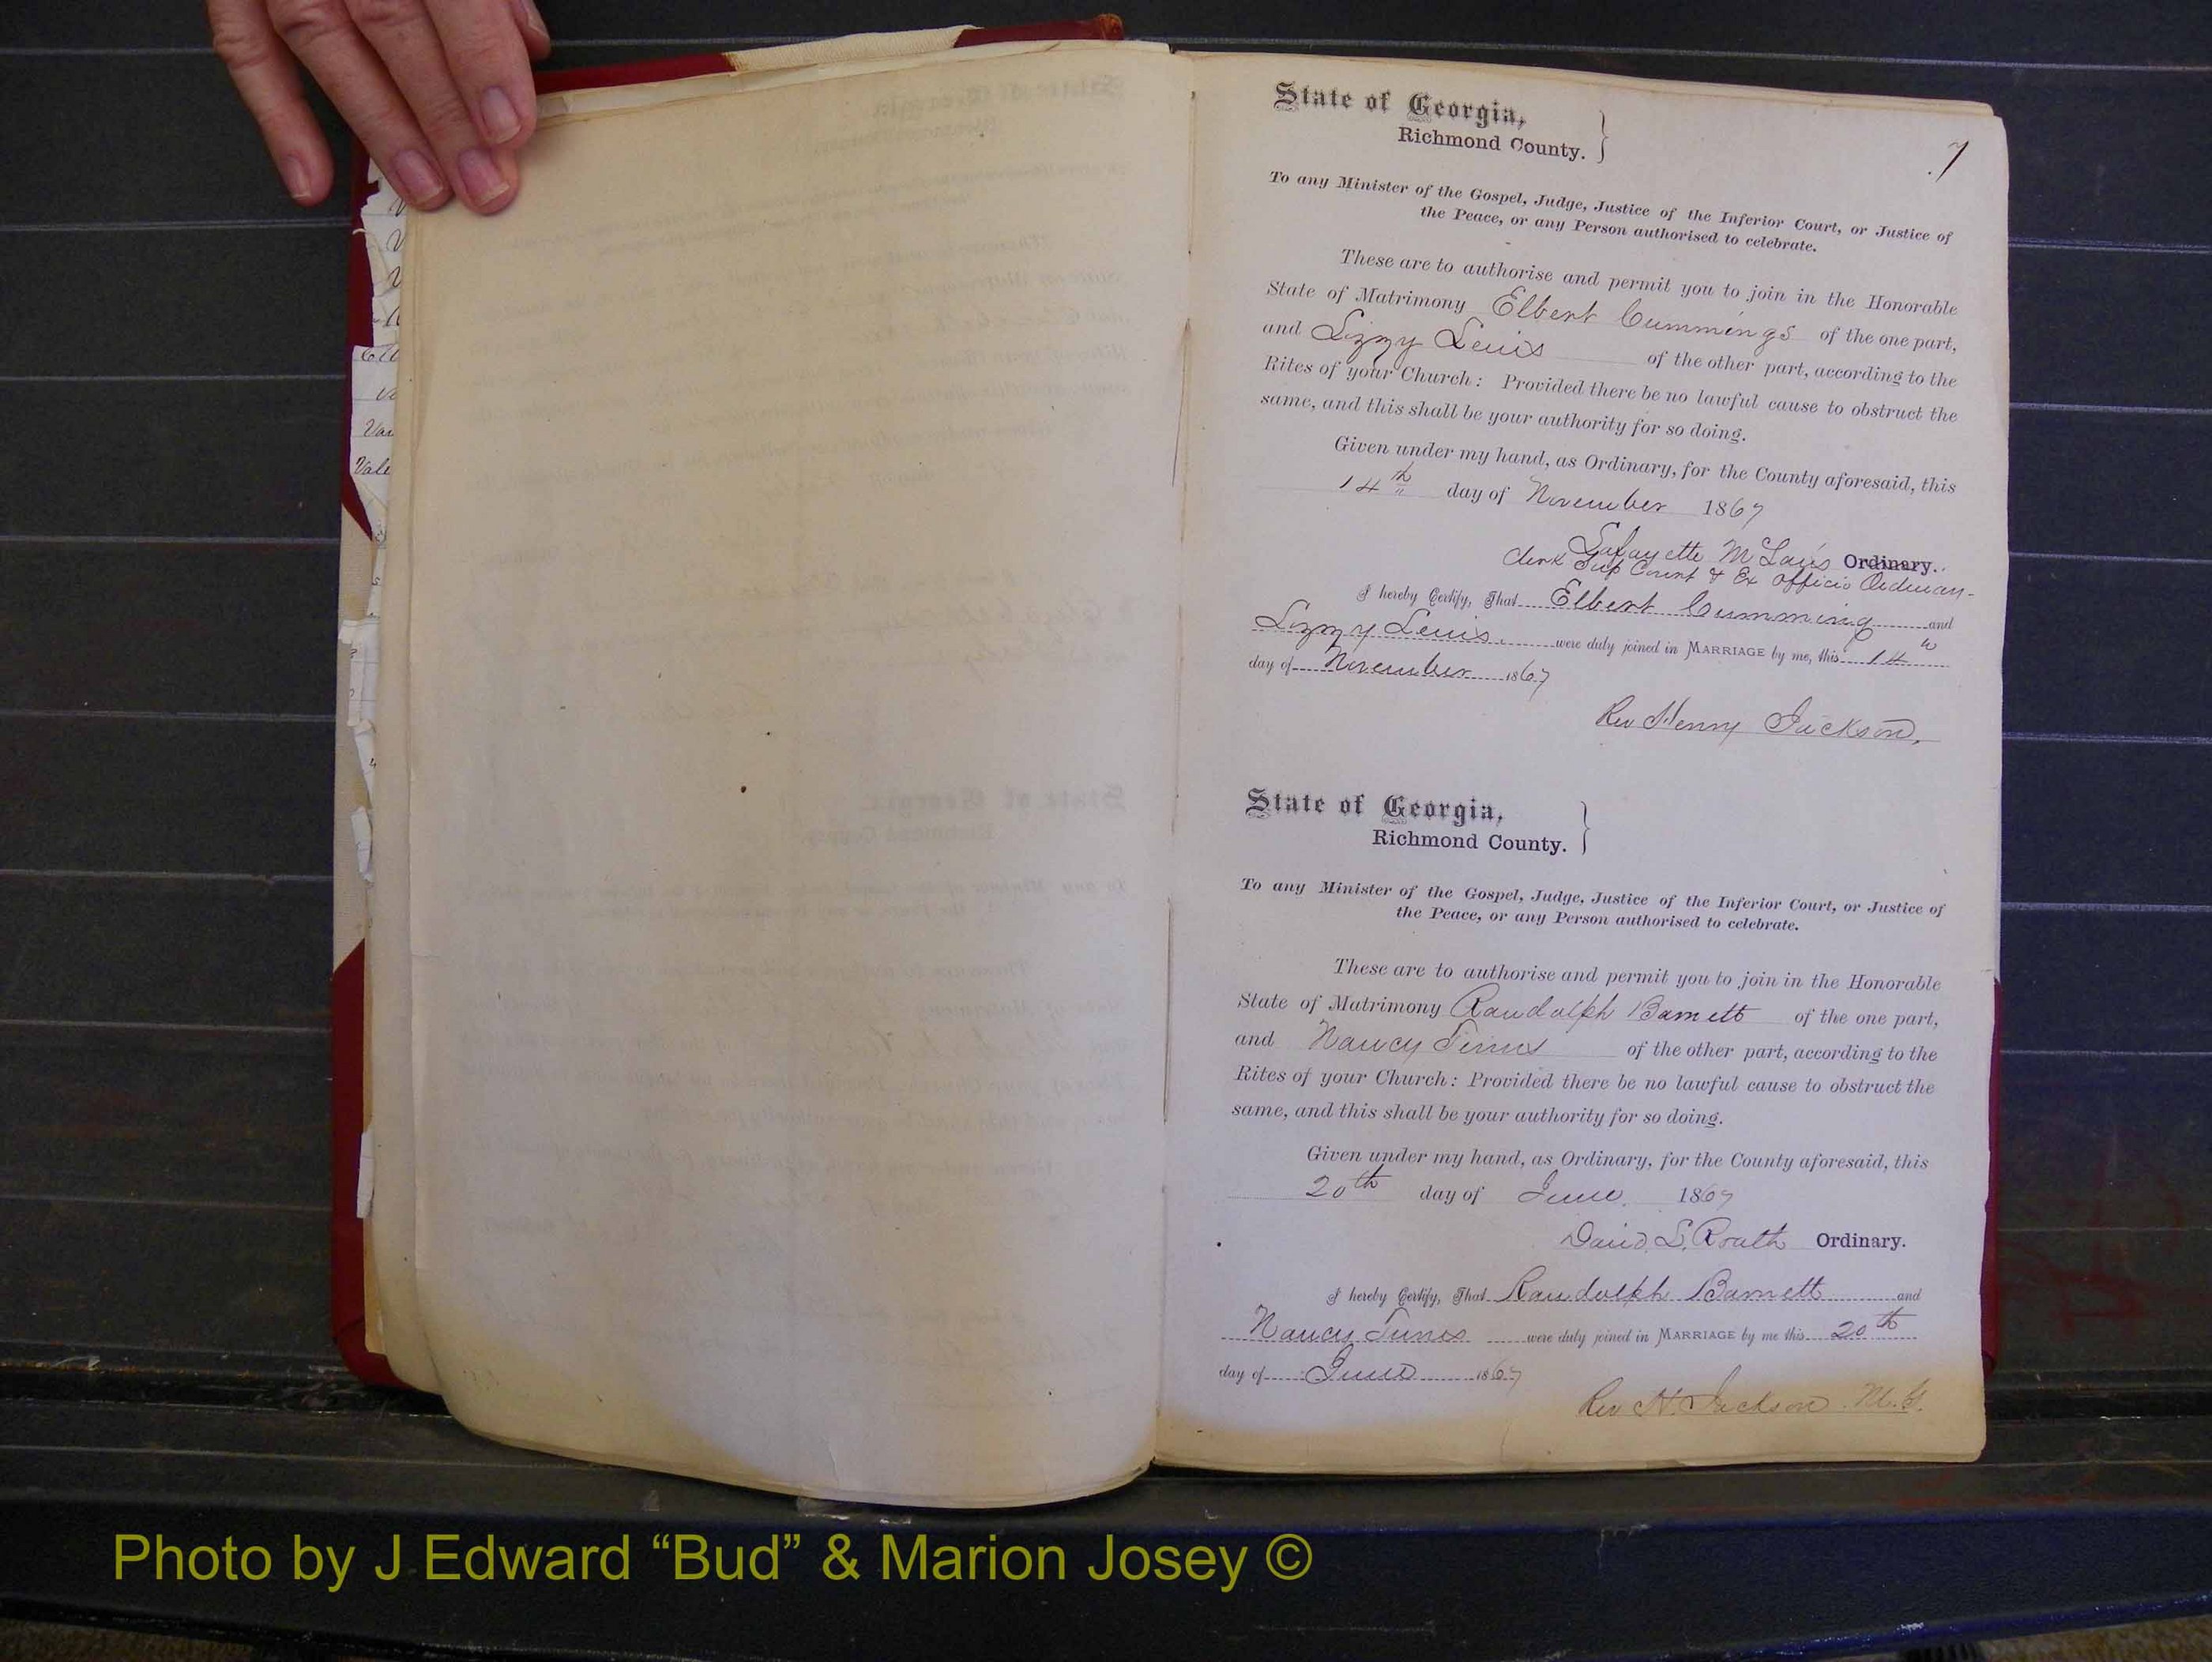 State of Georgia,
Richmond County.
7
To any Minister of the Gospel, Judge, Justice of the Inferior Court, or Justice of
the Peace, or any Person authorised to celebrate.
These are to authorise and permit you to join in the Honorable
State of Matrimony Elbert Cummings of the one part,
and Lizzy Lewis of the other part, according to the
Rites of your Church: Provided there be no lawful cause to obstruct the
same, and this shall be your authority for so doing.
Given under my hand, as Ordinary, for the County aforesaid, this
14th day of November 1867
Lafayette McLaws Ordinary.
Clerk Sup Court & Ex officio Ordinary
I hereby Certify, That Elbert Cumming and
Lizzy Lewis were duly joined in MARRIAGE by me, this 14th
day of November 1867
Rev Henry Jackson,
State of Georgia,
Richmond County.
To any Minister of the Gospel, Judge, Justice of the Inferior Court, or Justice of
the Peace, or any Person authorised to celebrate.
These are to authorise and permit you to join in the Honorable
State of Matrimony Randolph Barnett of the one part,
and Nancy of the other part, according to the
Rites of your Church: Provided there be no lawful cause to obstruct the
same, and this shall be your authority for so doing.
Given under my hand, as Ordinary, for the County aforesaid, this
20th day of June 1867
David L. Roath Ordinary.
I hereby Certify, That Randolph Barnett and
Nancy were duly joined in MARRIAGE by me this 20th
day of June 1867
Rev H. Jackson M.G.
Photo by J Edward “Bud” & Marion Josey ©